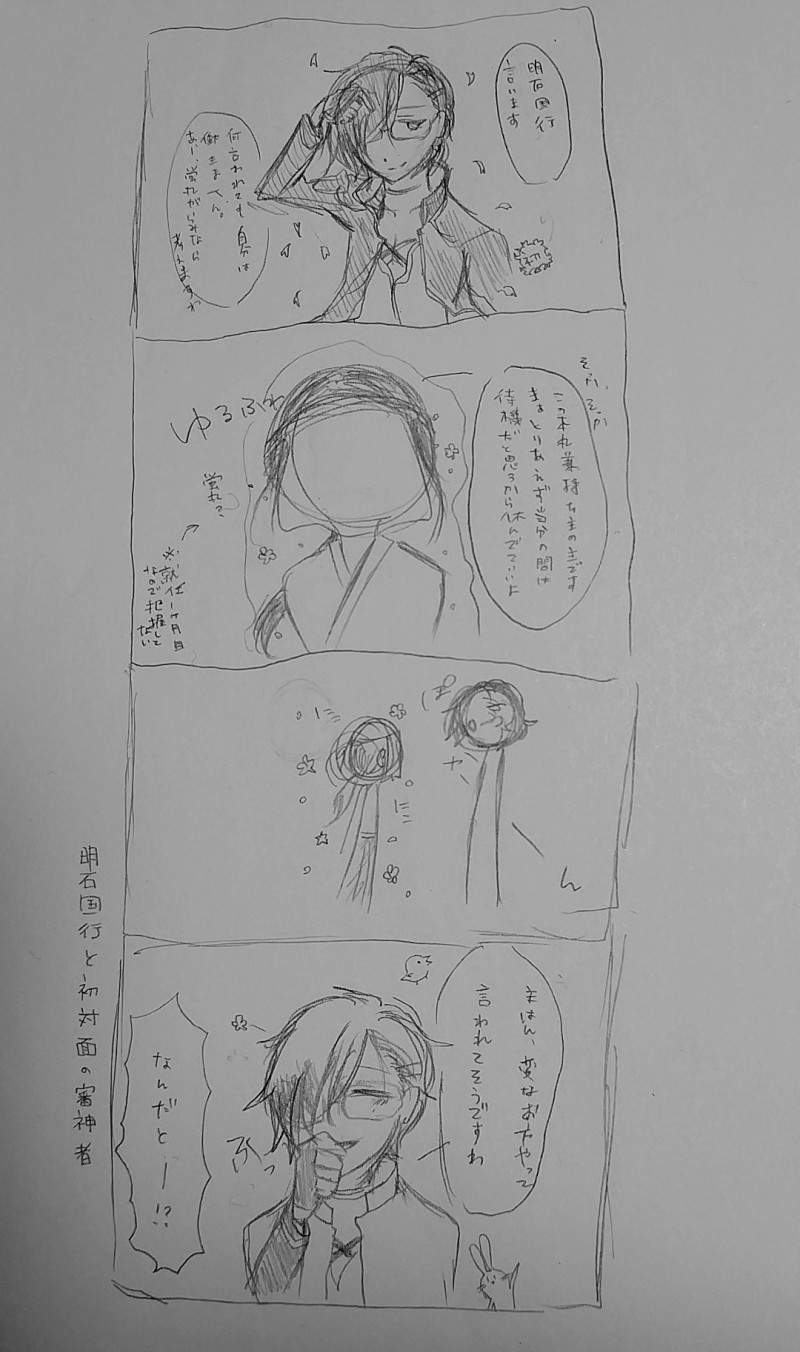 明石国行
言います
何言われても自分は
働きまへん。
あー、蛍丸がらみなら
考えますが
そっか、そっか
この本丸兼持ち主の主です
まぁとりあえず当分の間は
待機だと思うから休んでていいよ
ゆるふわ
蛍丸?
※就任1ヶ月目
なので把握して
ない
にこ
にこ
ぽ
か
ん
主はん、変なお方やって
言われてそうですわ
ふっ
なんだとー!?
明石国行と初対面の審神者